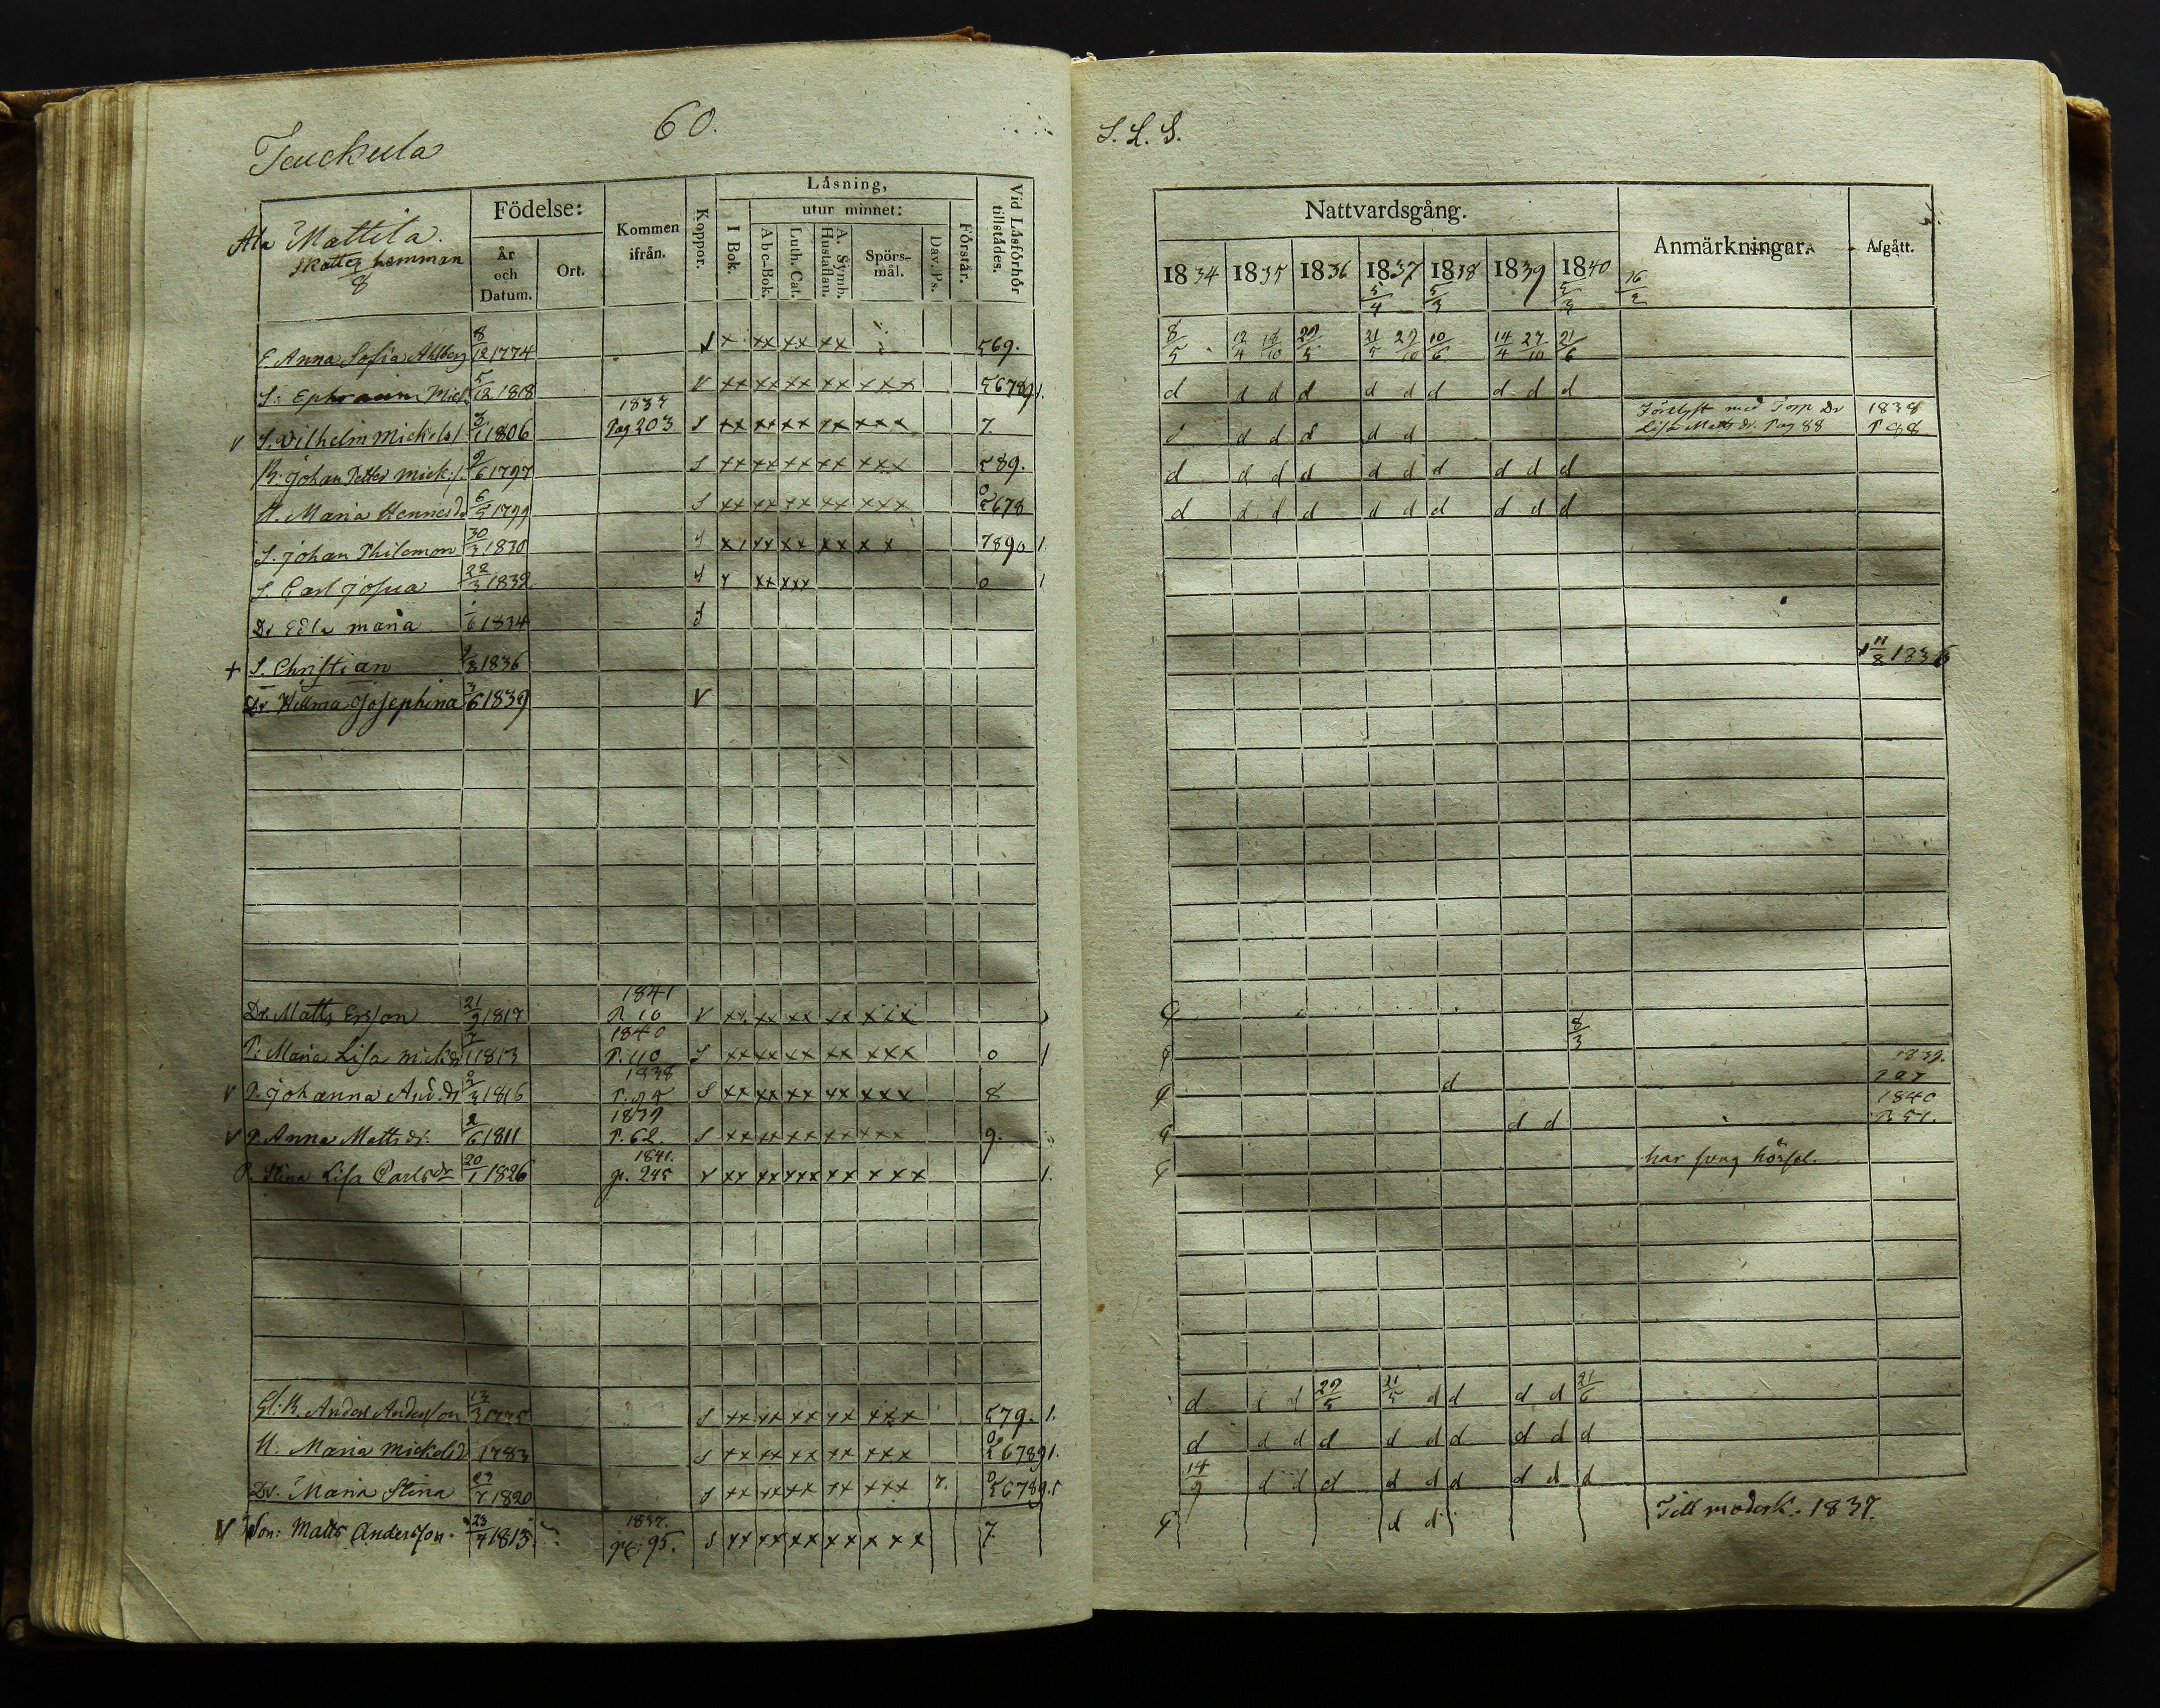 60.
Teuckula
S. L. S.
Ala Mattila.
Skatte hemman
8
Födelse:
År och Datum.
Ort.
Kommen ifrån.
Koppor.
Läsning,
I Bok.
utur minnet:
Abc-Bok.
Luth. Cat.
A. Symb. Hustaflan.
Spörs-mål.
Dav. Ps.
Förstår.
Vid Läsförhör tillstädes.
Nattvardsgång.
1834 1835 1836 1837 1838 1839 1840
5/4 5/3 5/3 16/2
Anmärkningar.
Afgått.
E. Anna Sofia Ahlberg 8/12 1774 x xx xx xx 569. 8/5 12/4 18/10 29/5 21/5 29/10 10/6 14/4 27/10 21/6
S. Ephraim Mick. 5/12 1818 v xx xx xx xx xxx 56789 1. d d d d d d d d d d
v S. Wilhelm Mickels. 3/1 1806 1837 Pag 203 s xx xx xx xx xxx 7. d d d d d d Med Torp Dr Lisa Matts dr. Pag 88 1838 P 88
B. Johan Petter Mick. s. 9/6 1797 s xx xx xx xx xxx 589. d d d d d d d d d d
H. Maria Hennes d. 6/5 1799 s xx xx xx xx xxx 0 5678 d d d d d d d d d d
S. Johan Philemon 30/3 1830 s x xx xx xx x x 7890 1
S. Carl Josua 22/3 1832 s x xx xxx 0 1
Dr Edla Maria /6 1834 s
+ S. Christian /3 1836 11/8 1836
Dr. Hilma Josephina 3/6 1839 v
Dr. Matts Ersson 21/9 1817 1841 P. 10 v xx xx xx xx xxx
P. Maria Lisa Micks dr 1/1 1813 1840 P. 110 s xx xx xx xx xxx 0 1 8/3
v P. Johanna And. dr 2/3 1816 1838 s xx xx xx xx xxx 8 d 1839. P 27
v P. Anna Matts dr. 2/6 1811 1839 P. 62. s xx xx xx xx xxx 9. d d 1840 P. 51.
P. Stina Lisa Carls dr 20/1 1826 1841. p. 245 v xx xx xxx xx xxx 1. har svag hörsel.
Gl. B. Anders Andersson 13/3 1775 s xx xx xx xx xxx 579. 1. d d d 29/5 21/5 d d d d 21/6
H. Maria Mickelsd. 1783 s xx xx xx xx xxx 0 56789 1. d d d d d d d d d d
Dr. Maria Stina 23/7 1820 s xx xx xx xx xxx 7. 0 56789. 14/9 d d d d d d d d d
v Son: Matts Andersson. 23/4 1813. 1837. p. 95. s xx xx xx xx xxx 7 d d Till moderk. 1837.